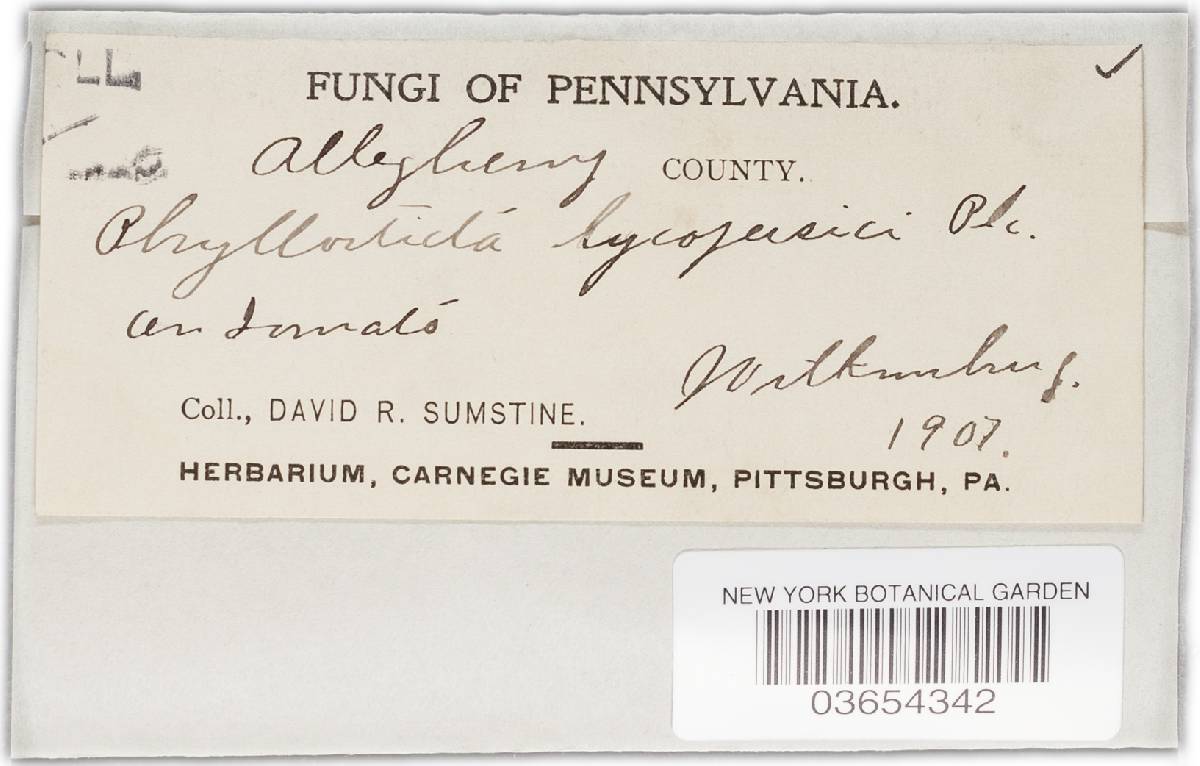 FUNGI OF PENNSYLVANIA.
Allegheny COUNTY.
Phyllosticta lycopersici Pk.
on tomato
Wilkinsburg.
Coll., DAVID R. SUMSTINE.
1907.
HERBARIUM, CARNEGIE MUSEUM, PITTSBURGH, PA.
NEW YORK BOTANICAL GARDEN
03654342